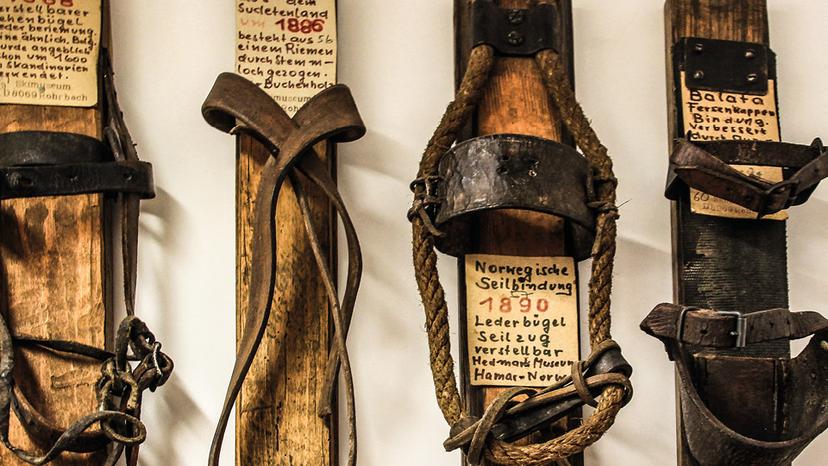 1868
stellbarer
henbügel
leder beriemung.
ine ähnlich. Balg
urde angeblich
chon um 1600
n Skandinavien
verwendet.
Skimuseum
D8069 Rohrbach
Sudetenland
um 1886
besteht aus
einem Riemen
durch Stemm-
loch gezogen.
Buchenholz
museum
Norwegische
Seilbindung
1890
Lederbügel
Seilzug
verstellbar
Hedmark Museum
Hamar-Norw
Balata
Fersenkappen
Bindung.
verbessert
durch
60